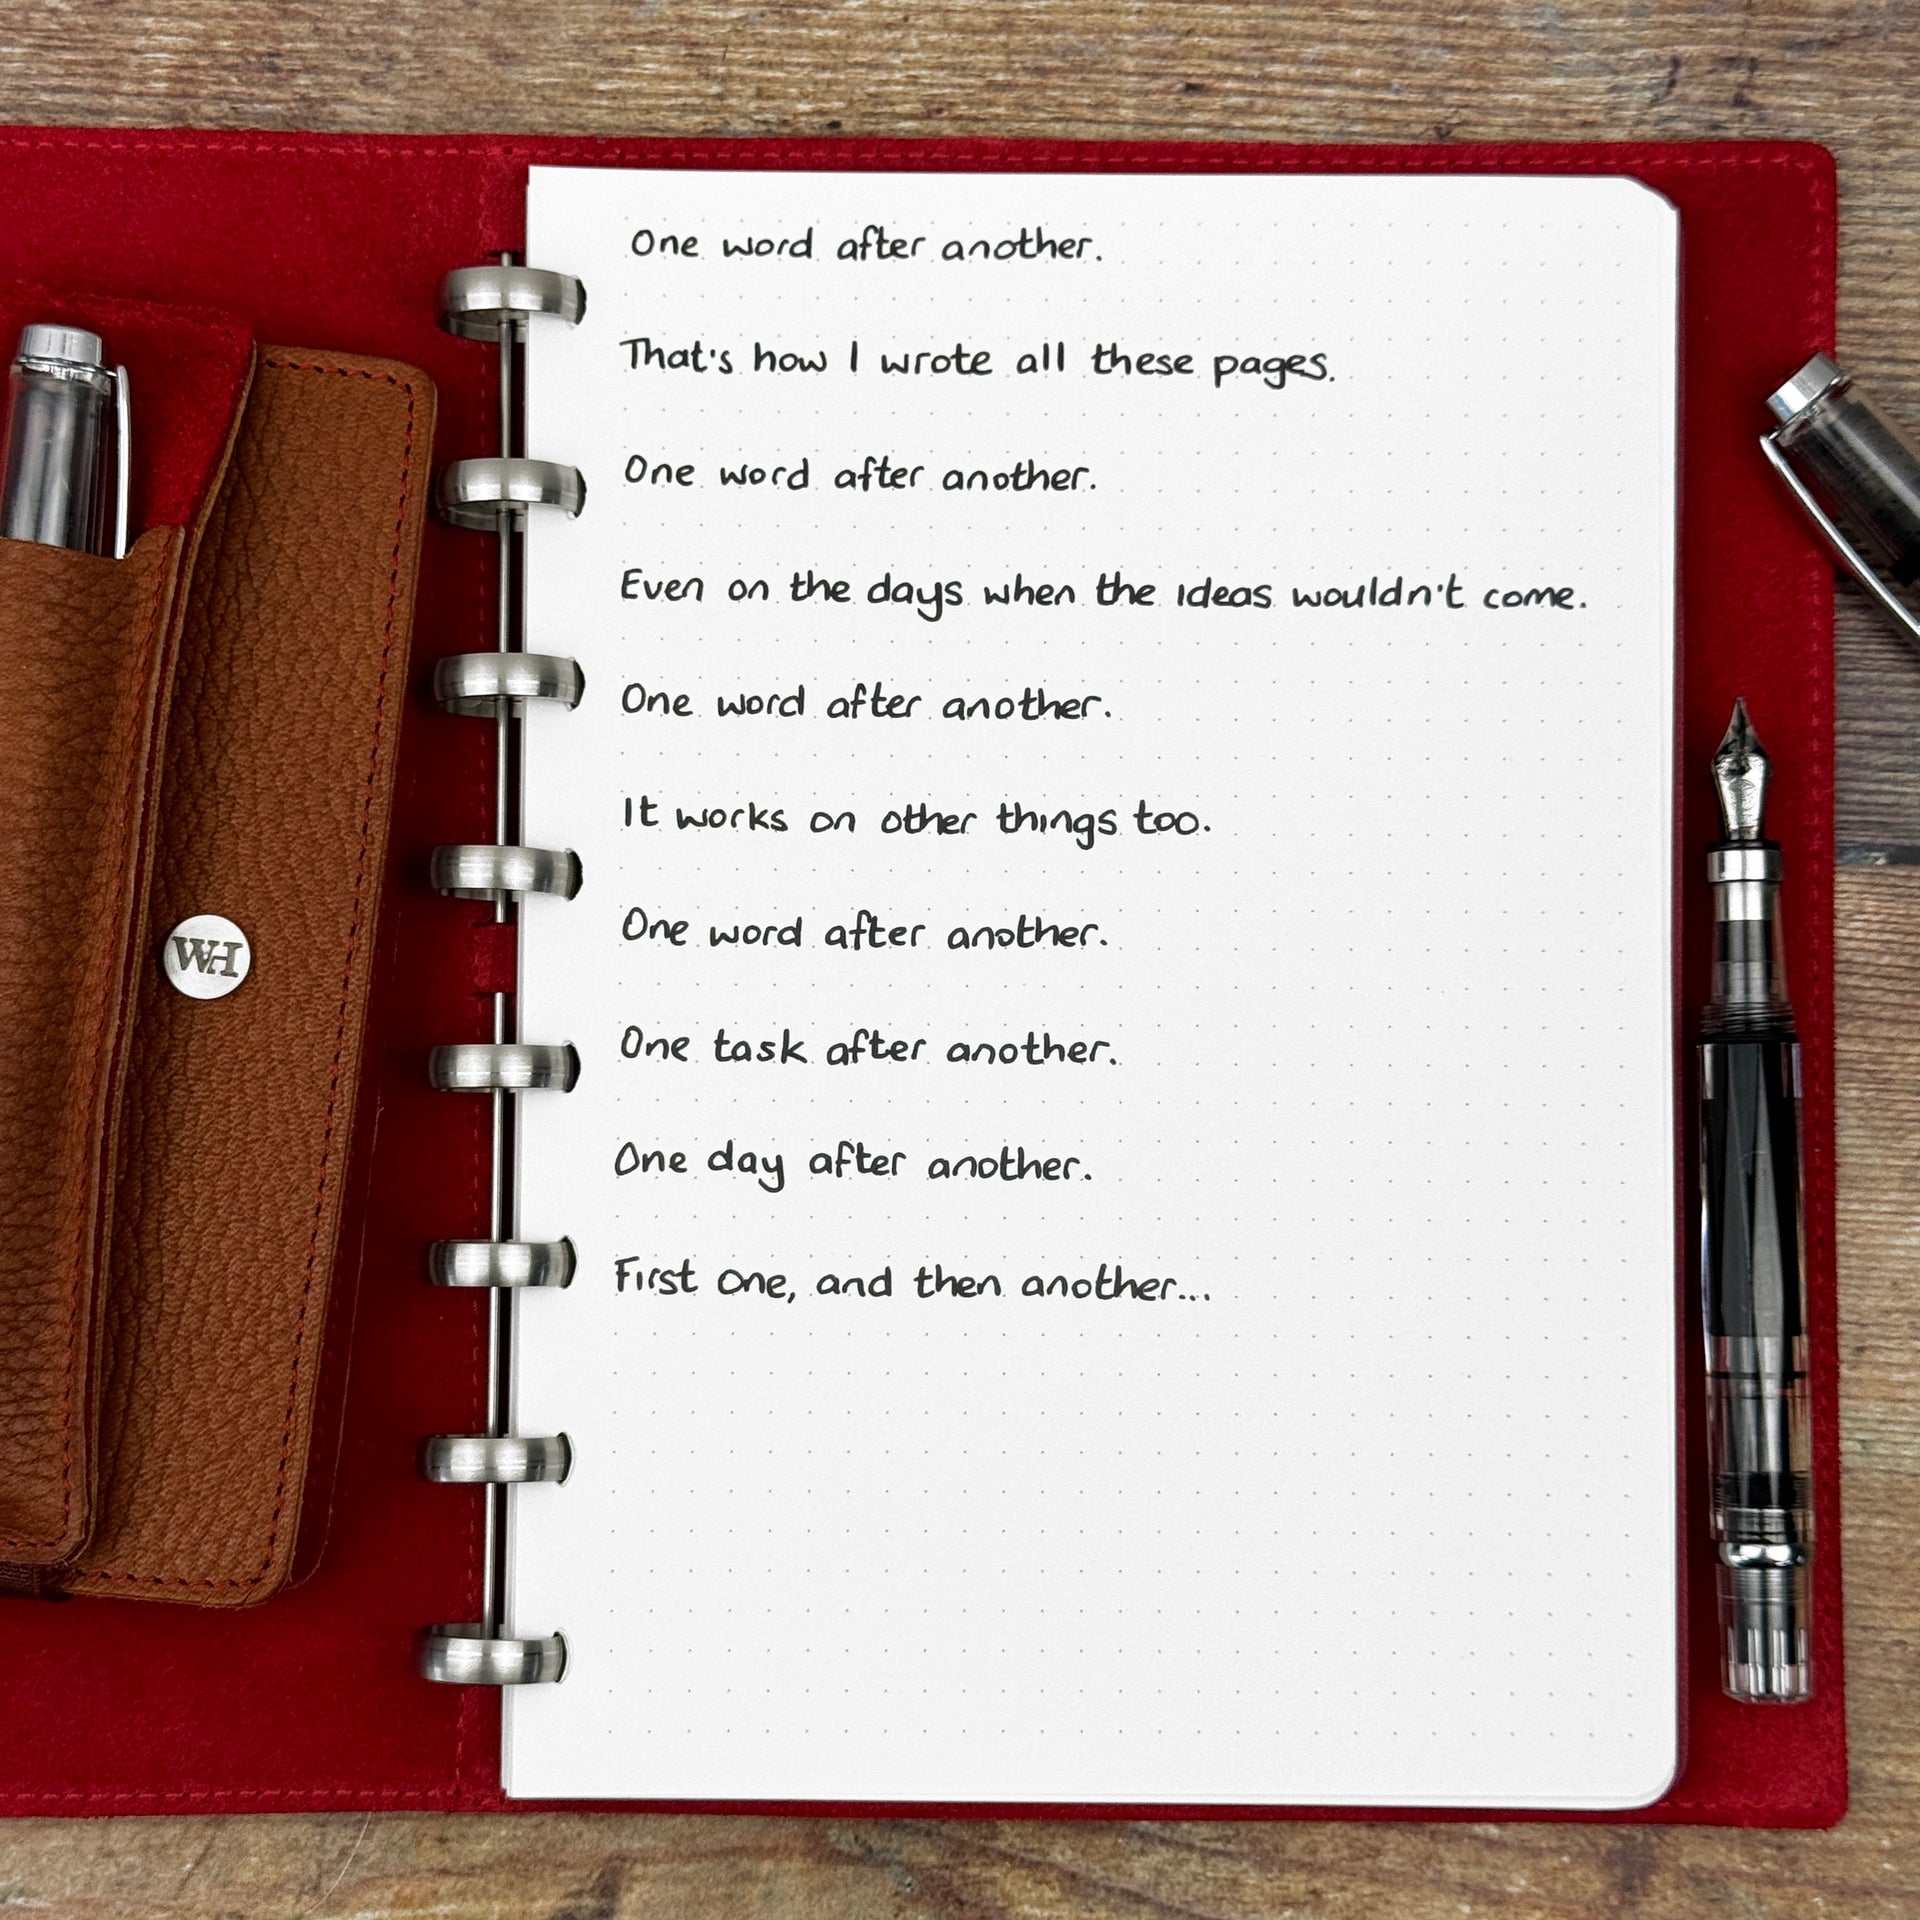 One word after another.
That's how I wrote all these pages.
One word after another.
Even on the days when the ideas wouldn't come.
One word after another.
It works on other things too.
One word after another.
One task after another.
One day after another.
First one, and then another...
WH